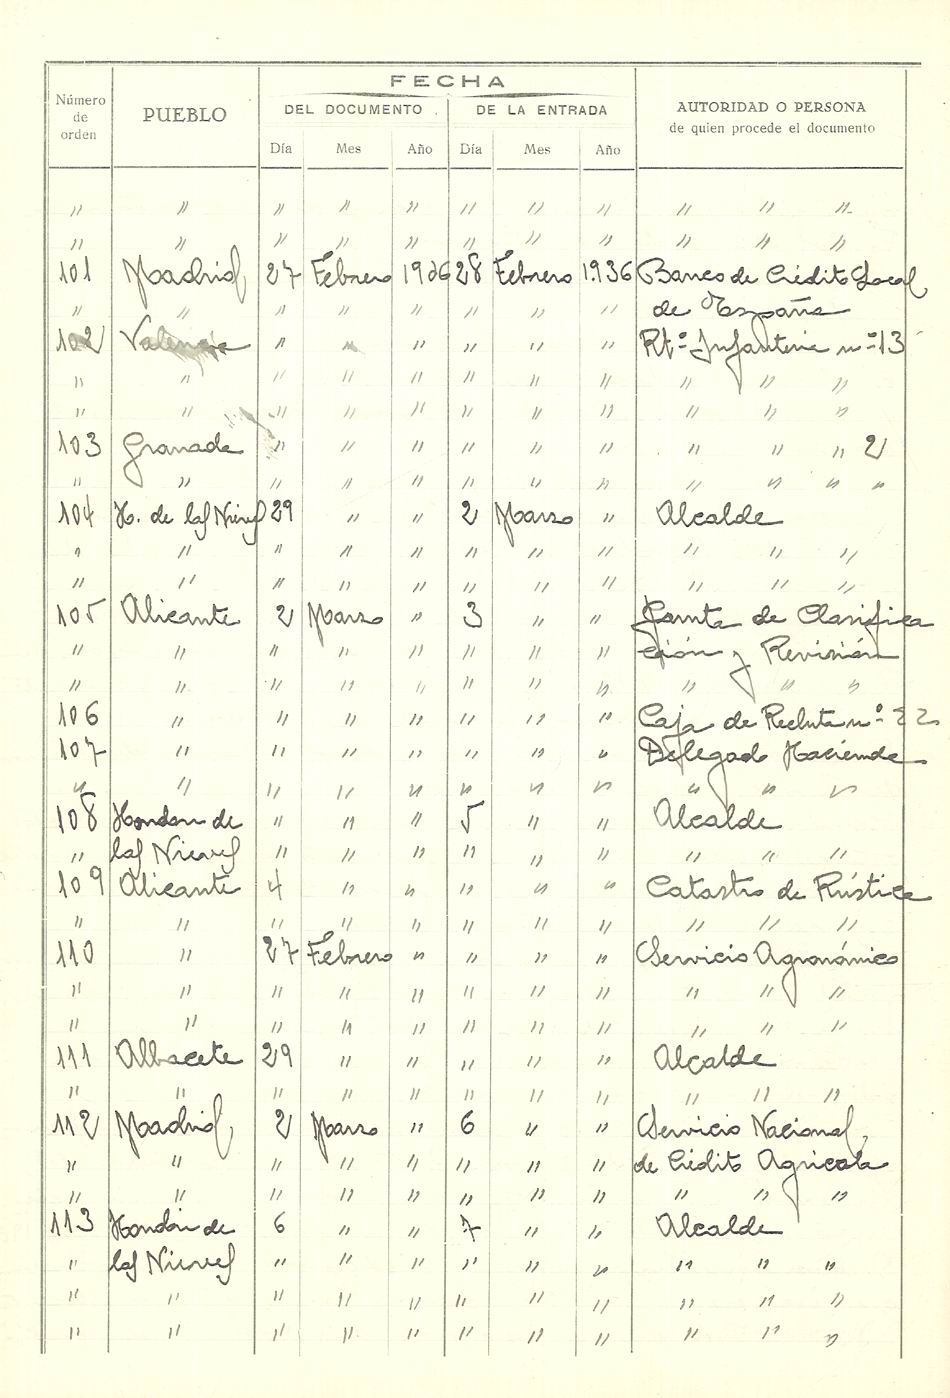 FECHA
Número de orden PUEBLO DEL DOCUMENTO DE LA ENTRADA AUTORIDAD O PERSONA de quien procede el documento
Día Mes Año Día Mes Año
" " " " " " " " " " "
" " " " " " " " " " "
101 Madrid 27 Febrero 1936 28 Febrero 1936 Banco de Crédito Local
" " " " " " " " de España
102 Valencia " " " " " " Rtº Infanteria nº 13
" " " " " " " " " " "
" " " " " " " " " " "
103 Granada " " " " " " " " " 2
" " " " " " " " " " " "
104 H. de las Nieves 29 " " 2 Marzo " Alcalde
" " " " " " " " " " "
" " " " " " " " " " "
105 Alicante 2 Marzo " 3 " " Junta de Clasifica
" " " " " " " " ción y Revisión
" " " " " " " " " " "
106 " " " " " " " Caja de Recluta nº 22
107 " " " " " " " Delegado Hacienda
" " " " " " " " " " "
108 Hondon de " " " 5 " " Alcalde
" las Nieves " " " " " " " " "
109 Alicante 4 " " " " " Catastro de Rústica
" " " " " " " " " " "
110 " 27 Febrero " " " " Servicio Agronómico
" " " " " " " " " " "
" " " " " " " " " " "
111 Albacete 29 " " " " " Alcalde
" " " " " " " " " " "
112 Madrid 2 Marzo " 6 " " Servicio Nacional
" " " " " " " " de Crédito Agricola
" " " " " " " " " " "
113 Hondón de 6 " " 7 " " Alcalde
" las Nieves " " " " " " " " "
" " " " " " " " " " "
" " " " " " " " " " "